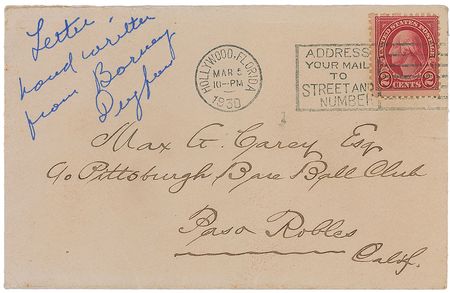 Letter
hand written
from Barney
Dreyfuss
HOLLYWOOD, FLORIDA
MAR 5
10-PM
1930
ADDRESS
YOUR MAIL
TO
STREET AND
NUMBER
UNITED STATES POSTAGE
2 CENTS 2
Max G. Carey Esq
c/o Pittsburgh Base Ball Club
Paso Robles
Calif.